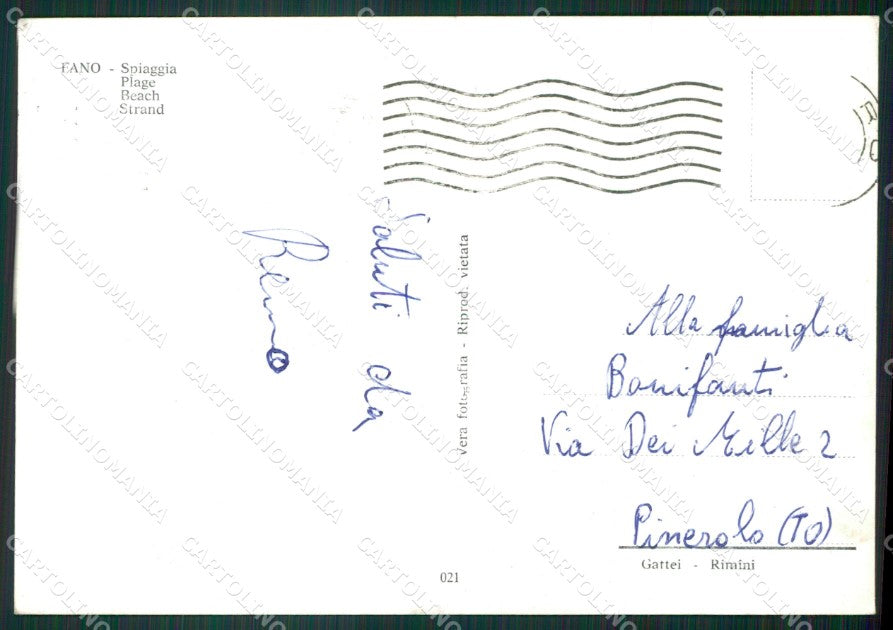 FANO - Spiaggia
Plage
Beach
Strand
Saluti da
Remo
Vera fotografia - Riprod. vietata
Alla famiglia
Bonifanti
Via Dei Mille 2
Pinerolo (TO)
Gattei - Rimini
021
CARTOLINOMANIA